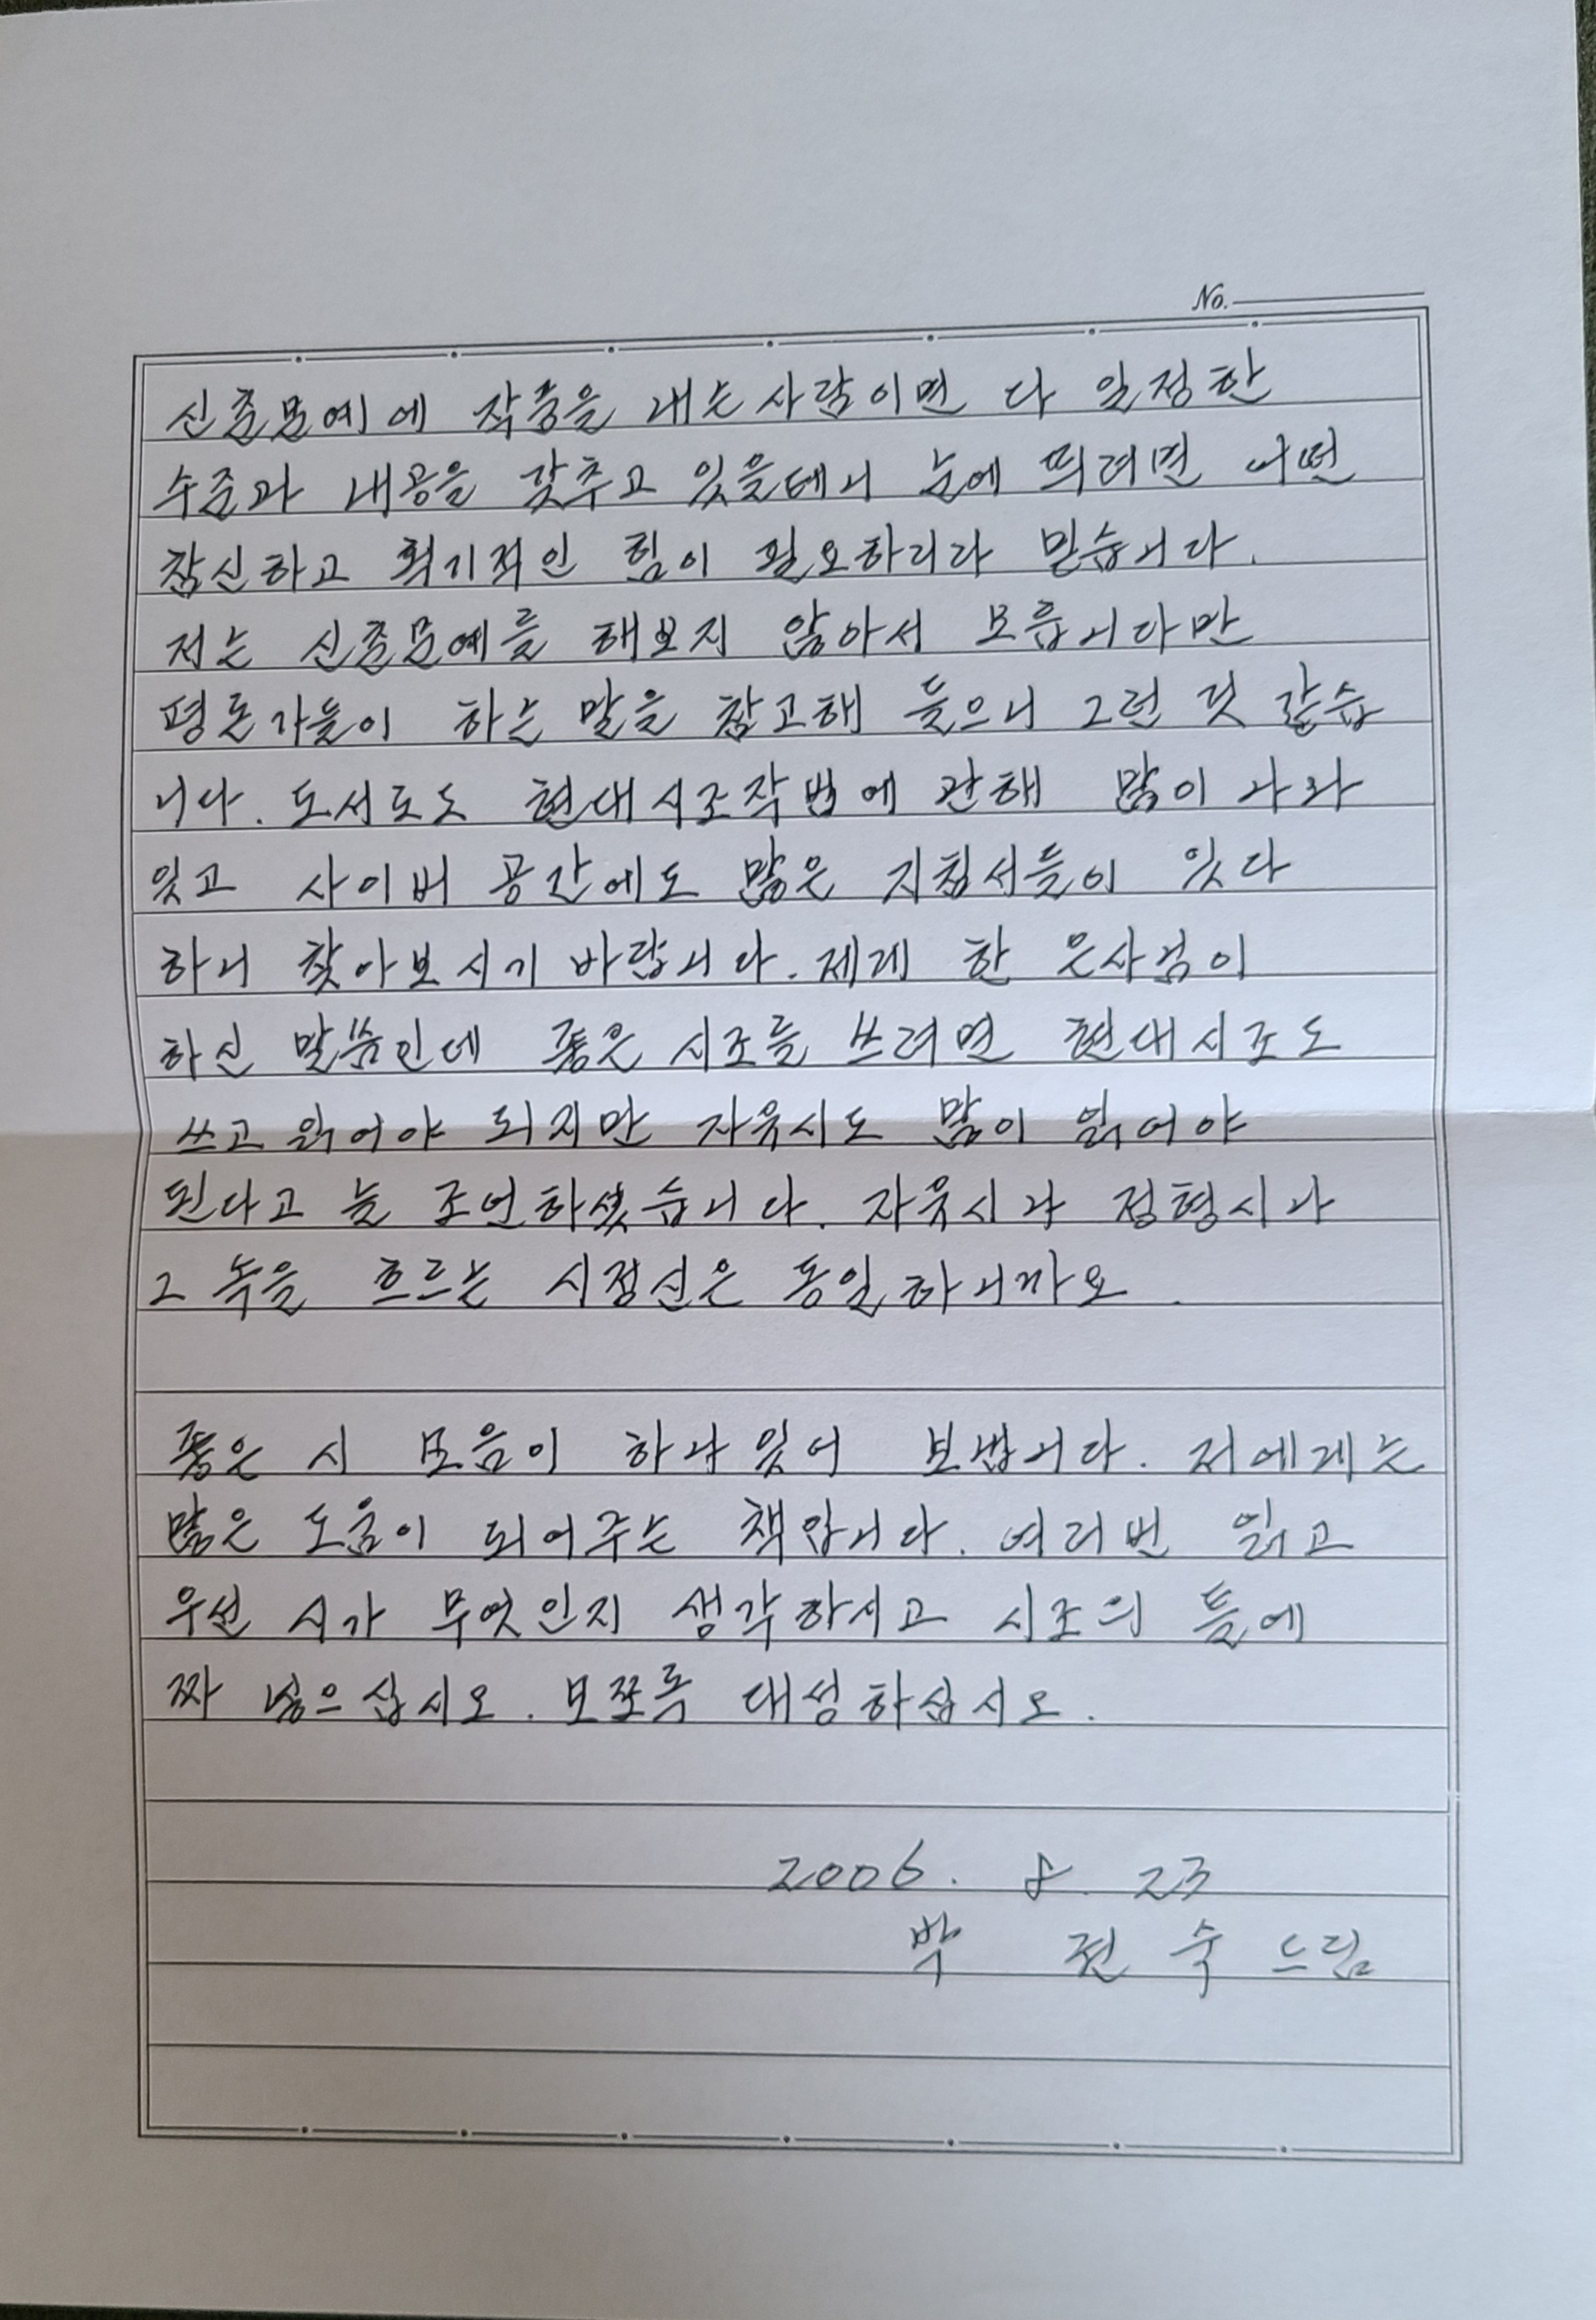 No.
신춘문예에 작품을 내는 사람이면 다 일정한
수준과 내공을 갖추고 있을테니 눈에 띄려면 어떤
참신하고 획기적인 힘이 필요하리라 믿습니다.
저는 신춘문예를 해보지 않아서 모릅니다만
평론가들이 하는 말을 참고해 들으니 그런 것 같습
니다. 도서로도 현대시조작법에 관해 많이 나와
있고 사이버 공간에도 많은 지침서들이 있다
하니 찾아보시기 바랍니다. 제게 한 은사님이
하신 말씀인데 좋은 시조를 쓰려면 현대시조도
쓰고 읽어야 되지만 자유시도 많이 읽어야
된다고 늘 조언하셨습니다. 자유시나 정형시나
그 속을 흐르는 시정신은 동일하니까요.
좋은 시 모음이 하나 있어 보냅니다. 저에게는
많은 도움이 되어주는 책입니다. 여러번 읽고
우선 시가 무엇인지 생각하시고 시조의 틀에
짜 넣으십시오. 모쪼록 대성하십시오.
2006. 8. 23
박 숙 드림